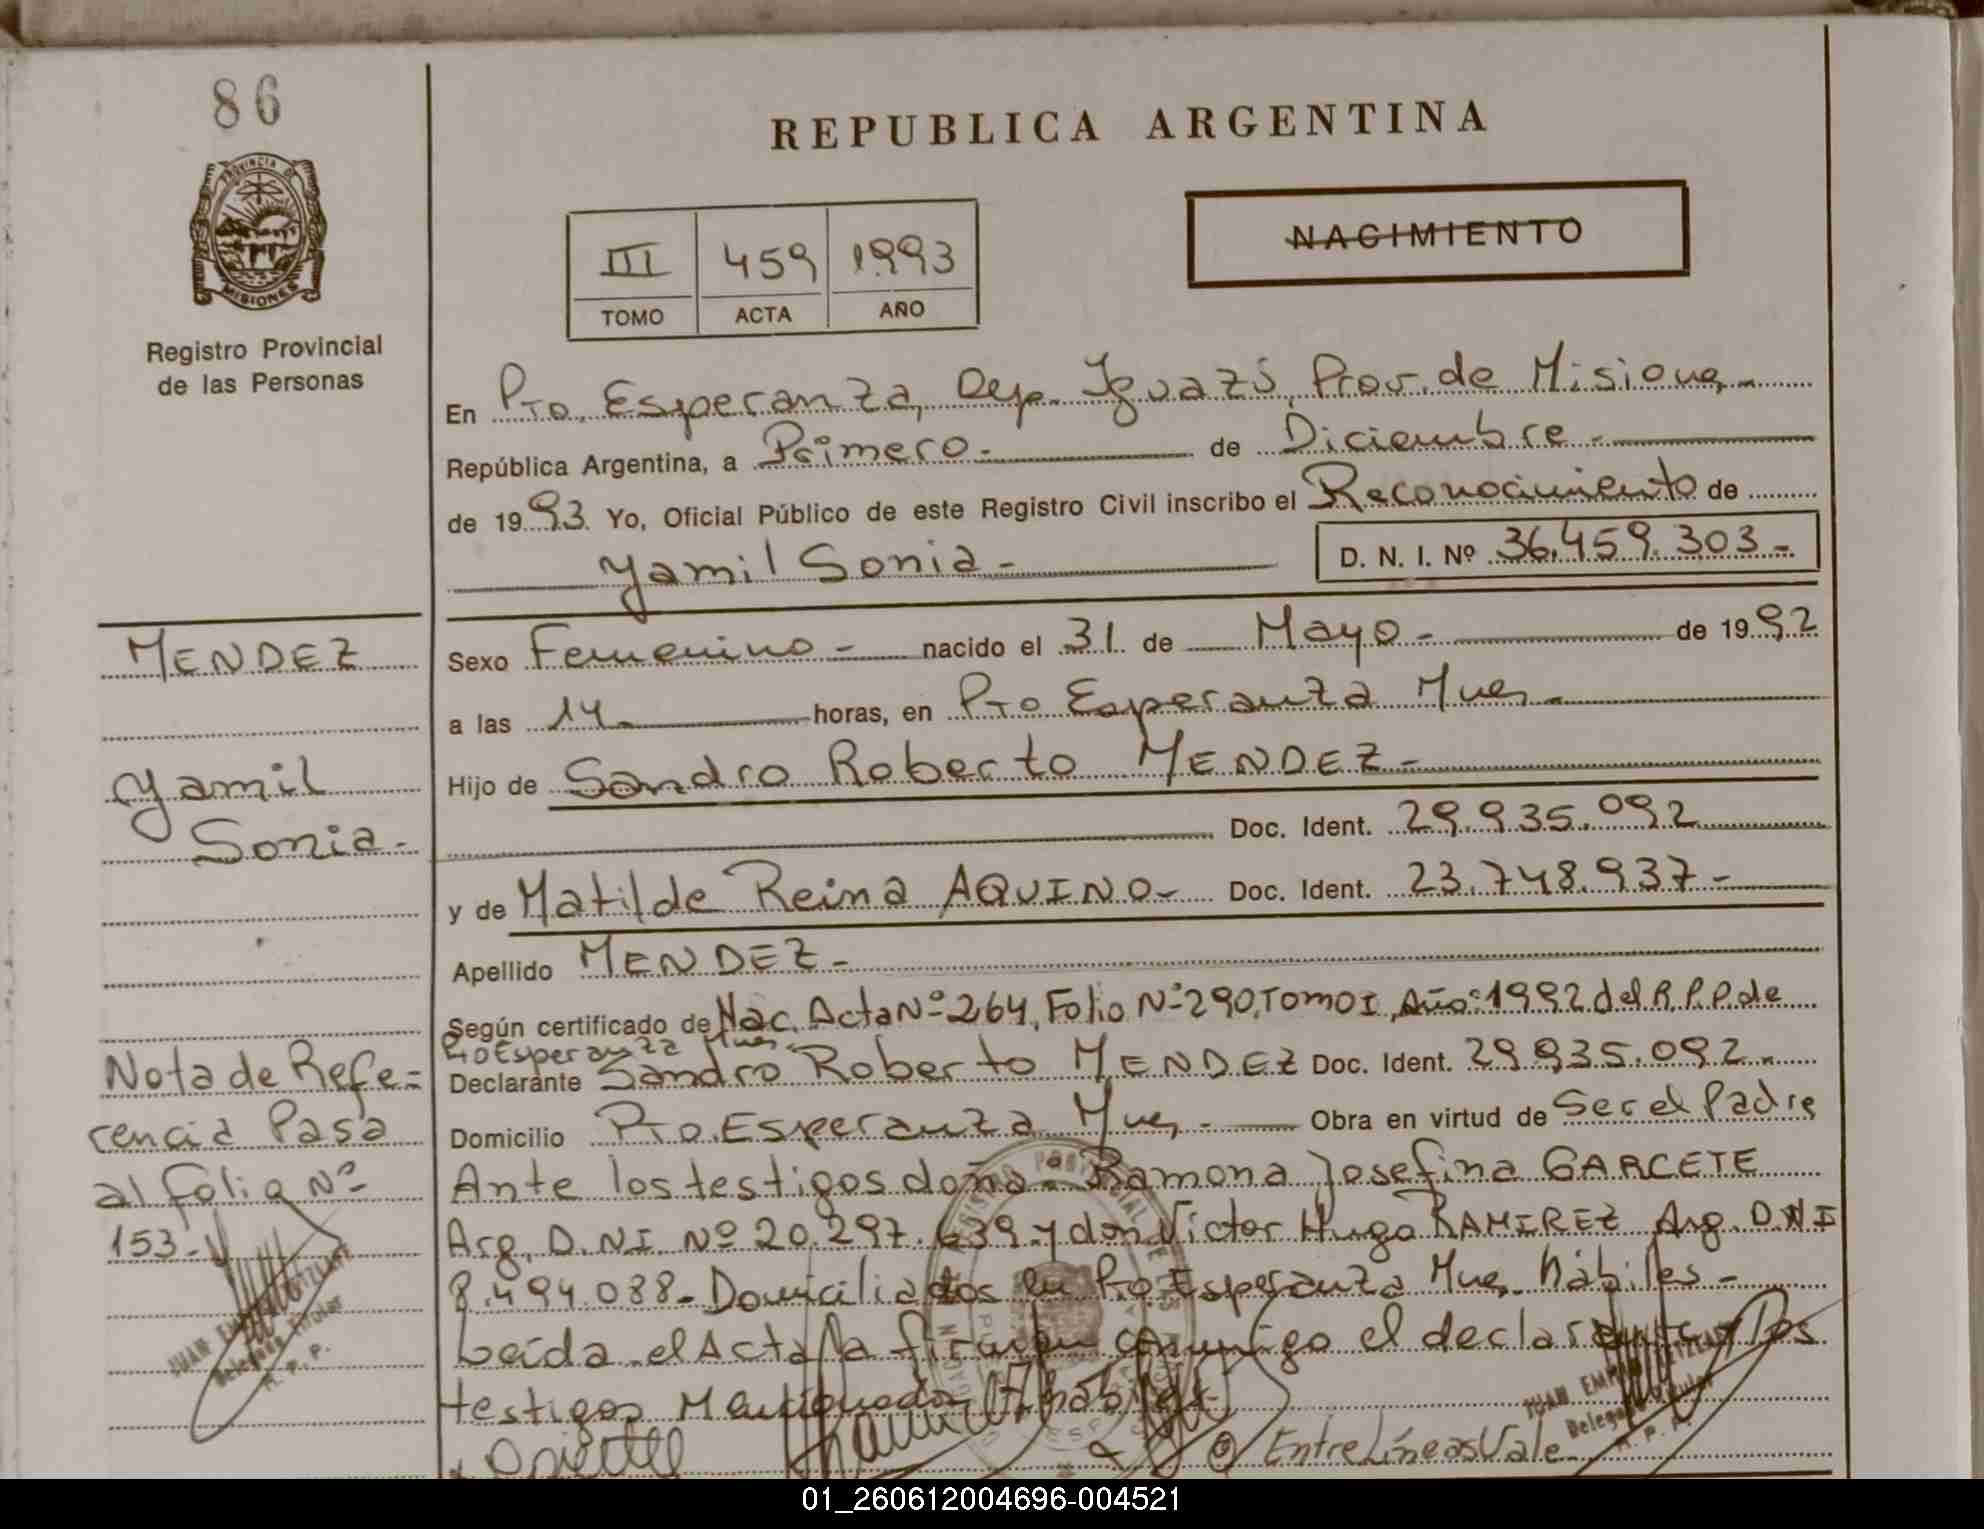 86
REPUBLICA ARGENTINA
PROVINCIA DE
MISIONES
Registro Provincial
de las Personas
III 459 1993
TOMO ACTA AÑO
NACIMIENTO
En Pto. Esperanza, Dep. Iguazú, Prov. de Misiones
República Argentina, a Primero.- de Diciembre.-
de 1993. Yo, Oficial Público de este Registro Civil inscribo el Reconocimiento de
Yamil Sonia - D. N. I. Nº 36.459.303-
MENDEZ
Yamil
Sonia-
Sexo Femenino - nacido el 31 de Mayo - de 1992
a las 14. horas, en Pto Esperanza Mnes-
Hijo de Sandro Roberto MENDEZ-
Doc. Ident. 29.935.092
y de Matilde Reina AQUINO- Doc. Ident. 23.748.937-
Apellido MENDEZ-
Según certificado de Nac. Acta Nº 264, Folio Nº 290, Tomo I, Año: 1992 del R.P.P. de
Pto Esperanza Mnes.
Declarante Sandro Roberto MENDEZ Doc. Ident. 29.935.092.-
Domicilio Pto. Esperanza Mnes - Obra en virtud de Ser el Padre
Ante los testigos doña Ramona Josefina GARCETE
Arg. D.N.I. Nº 20.297.639 y don Victor Hugo RAMIREZ Arg. D.N.I
8.494.088- Domiciliados en Pto. Esperanza Mnes. hábiles-
Leída el Acta la firman conmigo el declarante y los
testigos Mencionados
Entre Líneas Vale
Nota de Refe-
rencia Pasa
al Folio Nº
153-
JUAN
Delegado Titular
R. P. P.
JUAN
Delegado Titular
R. P. P.
01_260612004696-004521